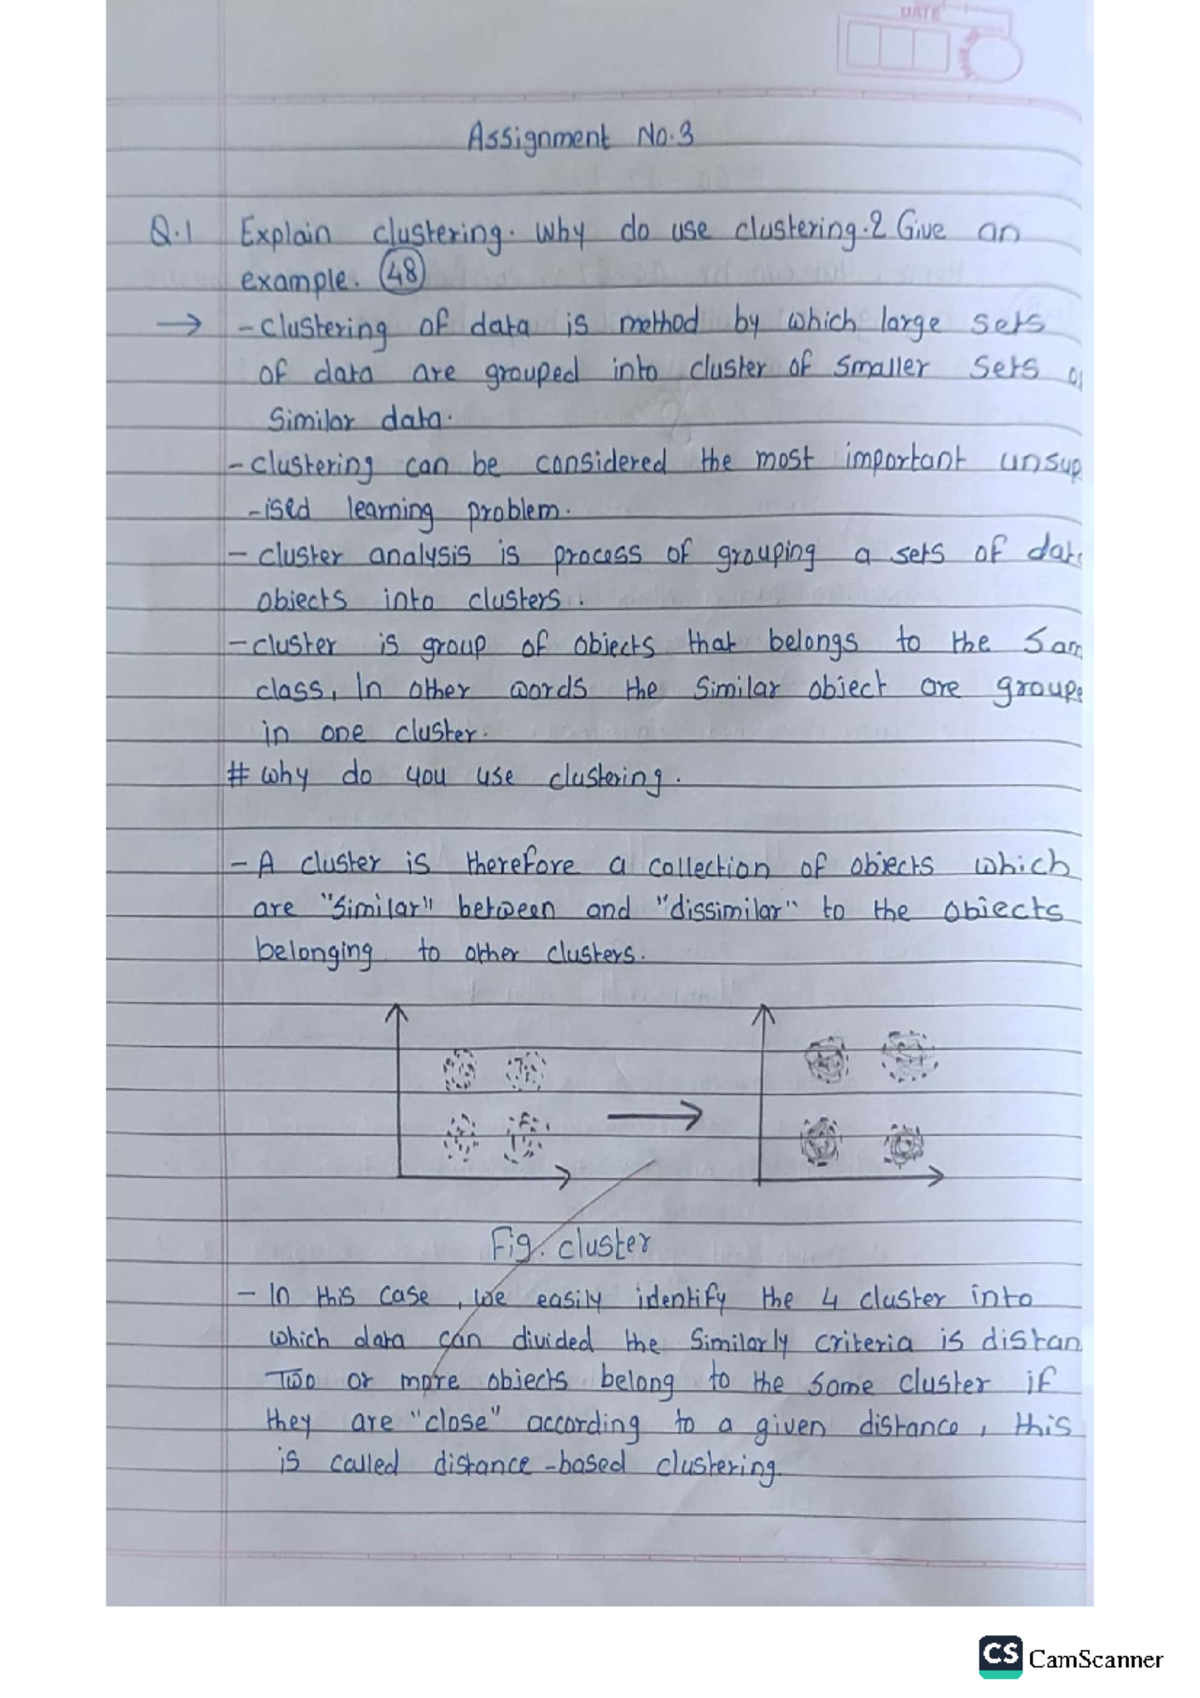 DATE
Assignment No.3
Q.1 Explain clustering. Why do use clustering.? Give an
example. 48
→ - clustering of data is method by which large sets
of data are grouped into cluster of smaller sets
similar data.
- clustering can be considered the most important unsup
-ised learning problem.
- cluster analysis is process of grouping a sets of data
objects into clusters.
- cluster is group of objects that belongs to the sam
class, In other words the similar object are groupe
in one cluster.
# why do you use clustering.
- A cluster is therefore a collection of objects which
are "similar" between and "dissimilar" to the objects
belonging to other clusters.
Fig. cluster
- In this case, we easily identify the 4 cluster into
which data can divided the similarly criteria is distan
Two or more objects belong to the same cluster if
they are "close" according to a given distance, this
is called distance-based clustering.
CS CamScanner